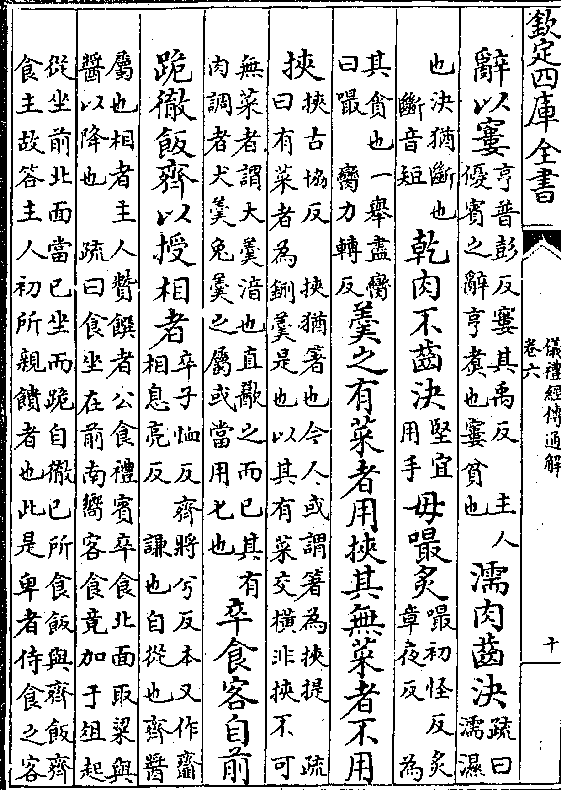 欽定四庫全書
儀禮經傳通解
卷六
十
辭以窶亨普彭反窶其禹反 主人優賓之辭亨煑也窶貧也濡肉齒決疏曰濡濕
也決猶斷也斷音短乾肉不齒決堅宜用手毋嘬炙嘬初怪反炙章夜反 為
其貪也一舉盡臠曰嘬 臠力轉反羹之有菜者用挾其無菜者不用
挾挾古協反 挾猶箸也今人或謂箸為挾提 疏曰有菜者為鉶羹是也以其有菜交橫非挾不可
無菜者謂大羹湆也直歠之而已其有肉調者犬羹兔羹之屬或當用匕也卒食客自前
跪徹飯齊以授相者卒子恤反齊將兮反本又作齎相息亮反 謙也自從也齊醬
屬也相者主人贊饌者公食禮賓卒食北面取粱與醬以降也 疏曰食坐在前南嚮客食竟加于俎起
從坐前北面當已坐而跪自徹已所食飯與齊飯齊食主故答主人初所親饋者也此是卑者侍食之客